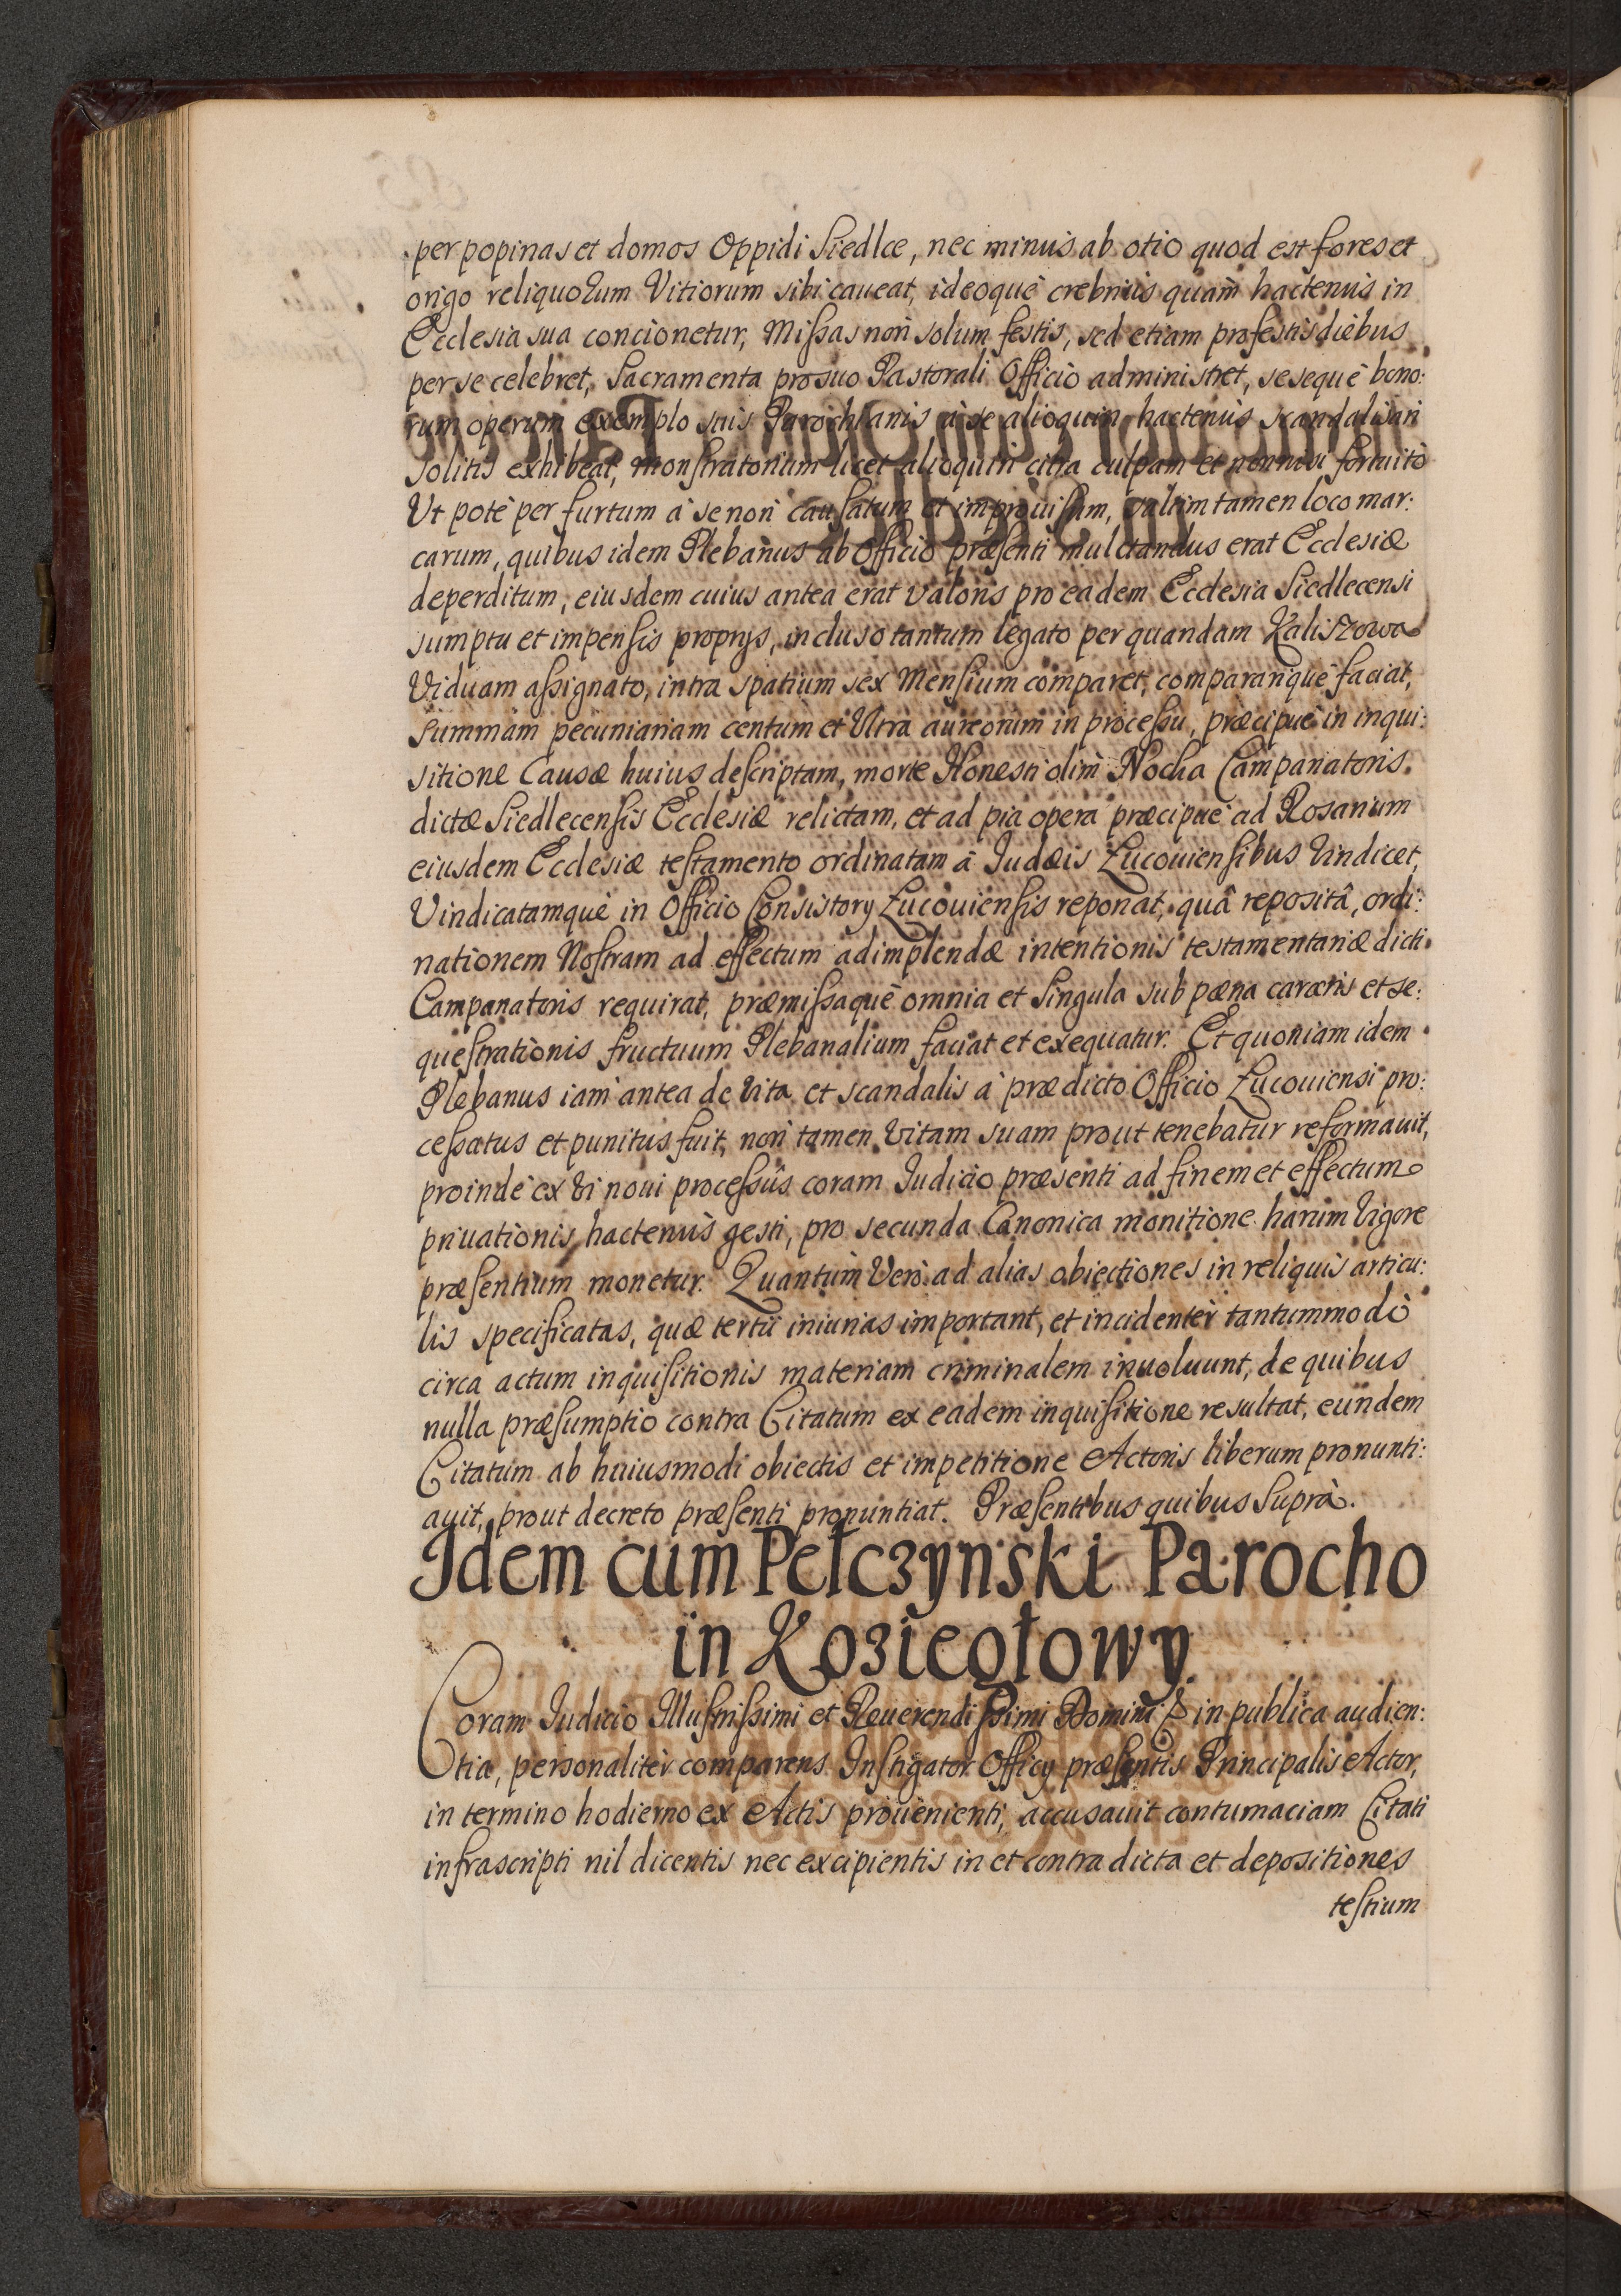 per popinas et domos Oppidi Siedlce, nec minus ab otio quod est fores et
origo reliquorum Vitiorum sibi caueat, ideoquè crebriùs quàm hactenùs in
Ecclesia sua concionetur, Missas non solum festis, sed etiam profestis diebus
per se celebret, Sacramenta pro suo Pastorali Officio administret, seseque bono:
rum operum exemplo suis Parochianis à se alioquin hactenùs scandalisari
solitis exhibeat, Monstratorium licet alioquin citra culpam et nonnisi fortuitò
Vt potè per furtum à se non causatum et improuisum, saltim tamen loco mar:
carum, quibus idem Plebanus ab Officio præsenti mulctandus erat Ecclesiæ
deperditum, eiusdem cuius antea erat valoris pro eadem Ecclesia Siedlecensi
sumptu et impensis proprijs, incluso tantum legato per quandam Kaliszowa
Viduam assignato, intra spatium sex Mensium comparet, comparariquè faciat,
Summam pecuniariam centum et Vltra aureorum in processu, præcipuè in inqui:
sitione Causæ huius descriptam, morte Honesti olim Nocha Campanatoris
dictæ Siedlecensis Ecclesiæ relictam, et ad pia opera præcipuè ad Rosarium
eiusdem Ecclesiæ testamento ordinatam à Judæis Lucouiensibus Vindicet,
Vindicatamquè in Officio Consistory Lucouiensis reponat, quâ repositâ, ordi:
nationem Nostram ad effectum adimplendæ intentionis testamentariæ dicti
Campanatoris requirat, præmissaquè omnia et Singula sub pœna carceris et se:
questrationis fructuum Plebanalium faciat et exequatur. Et quoniam idem
Plebanus iam antea de Vita et scandalis à prædicto Officio Lucouiensi pro:
cessatus et punitus fuit, non tamen Vitam suam prout tenebatur reformauit,
proindè ex Vi noui processûs coram Judicio præsenti ad finem et effectum
priuationis hactenùs gesti, pro secunda Canonica monitione harum Vigore
præsentium monetur. Quantùm Verò ad alias obiectiones in reliquis articu:
lis specificatas, quæ tertii iniurias important, et incidentèr tantummodò
circa actum inquisitionis materiam criminalem inuoluunt, de quibus
nulla præsumptio contra Citatum ex eadem inquisitione resultat, eundem
Citatum ab huiusmodi obiectis et impetitione Actoris liberum pronunti:
auit, prout decreto præsenti pronuntiat. Præsentibus quibus Suprà.
Idem cum Pełczynski Parocho
in Koziegłowy
Coram Judicio Illustrissimi et Reuerendissimi Domini & in publica audien:
tia, personalitèr comparens Instigator Officy præsentis Principalis Actor,
in termino hodierno ex Actis proueníenti, accusauit contumaciam Citati
infrascripti nil dicentis nec excipientis in et contra dicta et depositiones
testium